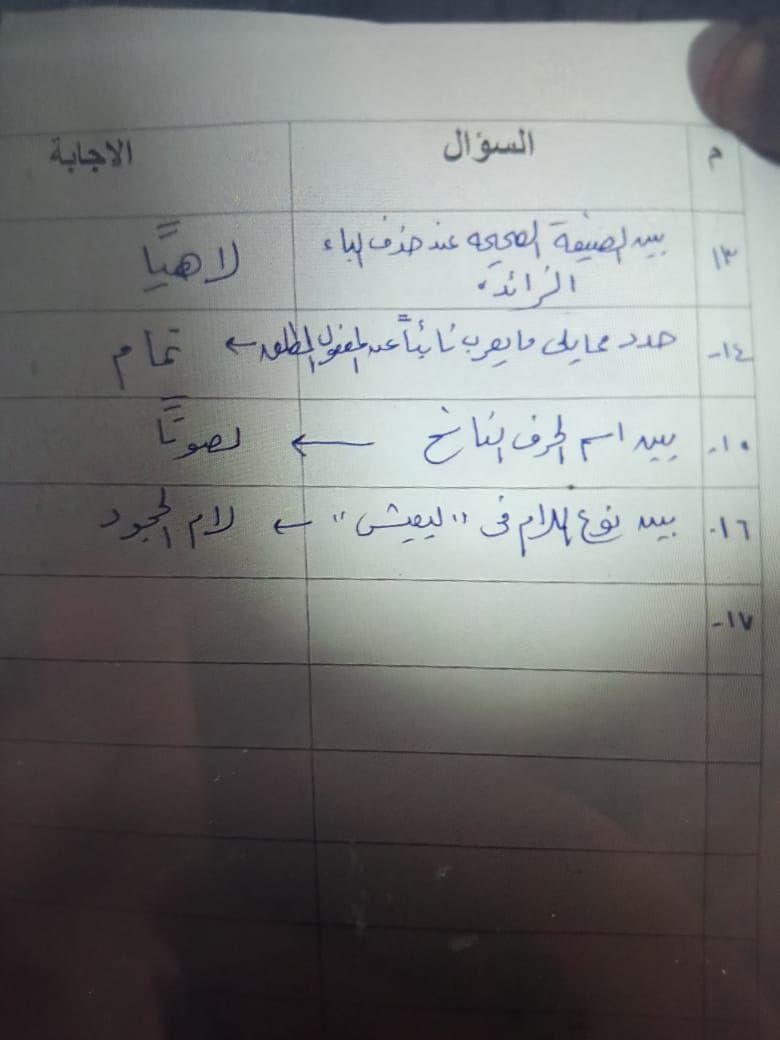 م السؤال الاجابة
١٣ بين الصيغة الصحيحه عند حذف الباء لاهيًا
الزائدة.
١٤- حدد مما يلى ما يعرب نائبًا عن المفعول المطلق ← تمام
١٥- بين اسم الحرف الناسخ ← لصوتًا
١٦- بين نوع اللام فى "ليعيش" ← لام الجحود
١٧-